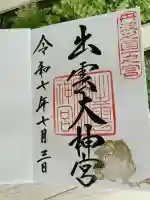 丹波國一之宮
出雲大神宮
令和七年十月三日